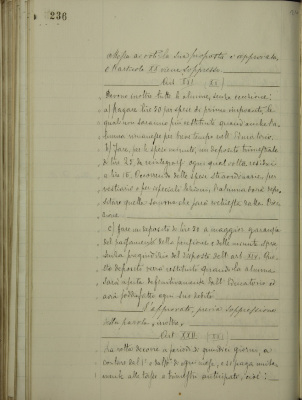 236
messa ai voti la sua proposta è approvata,
e l'articolo XX viene soppresso.
Art. XXI (XX)
Devono inoltre tutte le alunne, senza eccezione:
a) Pagare lire 50 per spese di primo impianto, le
quali non saranno più restituite quand'anche l'a-
lunna rimanesse per breve tempo nell'Educatorio.
b) Fare, per le spese minute, un deposito trimestrale
di lire 25, da reintegrarsi ogni qual volta residui
a lire 10. Occorrendo delle spese straordinarie, per
vestiario o per speciali lezioni, l'alunna dovrà depo-
sitare quella somma che sarà richiesta dalla Dire-
zione.
c) fare un deposito di lire 50 a maggior garanzia
del pagamento della pensione e delle minute spese
senza pregiudizio del disposto dell'art. XIX. Que-
sto deposito verrà restituito quando la alunna
sarà uscita definitivamente dall'Educatorio ed
avrà soddisfatto ogni suo debito.
È approvato, previa soppressione
della parola, inoltre.
Art. XXII (XXI)
La retta decorre a periodi di quindici giorni, a
contare dal 1° e dal 16 di ogni mese, e si paga unita-
mente alle tasse a trimestri anticipati, cioè: